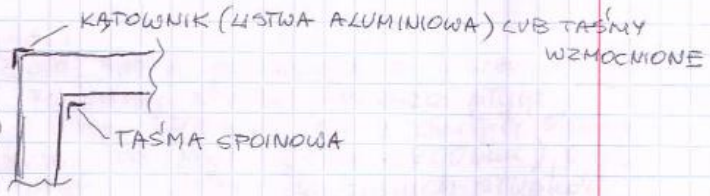 KĄTOWNIK (LISTWA ALUMINIOWA) LUB TAŚMY
WZMOCNIONE
TAŚMA SPOINOWA